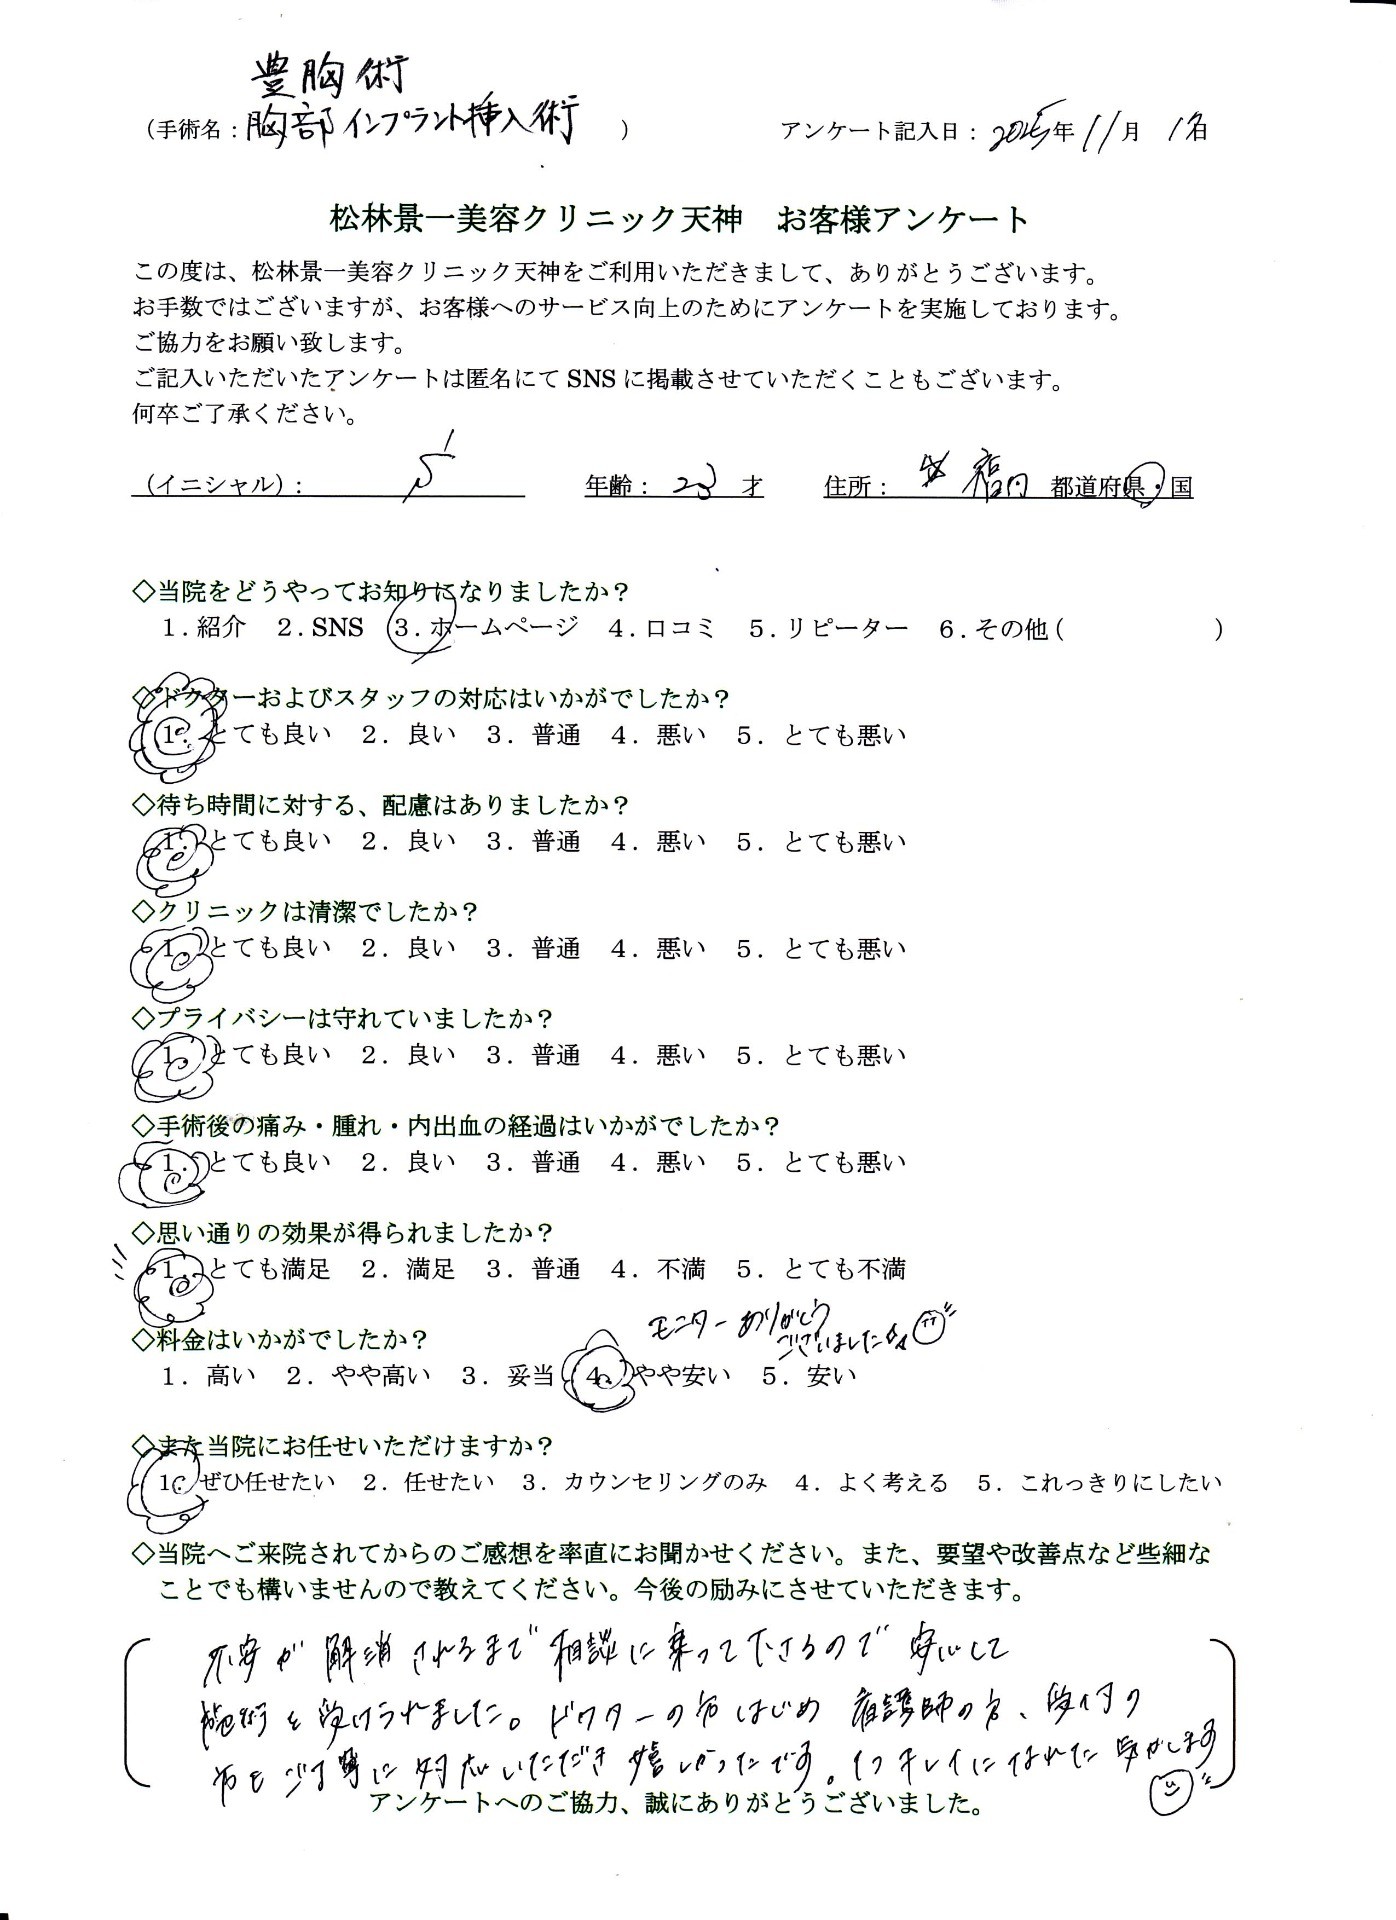 豊胸術
（手術名：胸部インプラント挿入術　）　アンケート記入日：2025年11月1日
松林景一美容クリニック天神　お客様アンケート
この度は、松林景一美容クリニック天神をご利用いただきまして、ありがとうございます。
お手数ではございますが、お客様へのサービス向上のためにアンケートを実施しております。
ご協力をお願い致します。
ご記入いただいたアンケートは匿名にて SNS に掲載させていただくこともございます。
何卒ご了承ください。
（イニシャル）：　年齢：23 才　住所：福岡 都道府県・国
◇当院をどうやってお知りになりましたか？
１.紹介　２.SNS　３.ホームページ　４.口コミ　５.リピーター　６.その他（　）
◇ドクターおよびスタッフの対応はいかがでしたか？
１．とても良い　２．良い　３．普通　４．悪い　５．とても悪い
◇待ち時間に対する、配慮はありましたか？
１．とても良い　２．良い　３．普通　４．悪い　５．とても悪い
◇クリニックは清潔でしたか？
１．とても良い　２．良い　３．普通　４．悪い　５．とても悪い
◇プライバシーは守れていましたか？
１．とても良い　２．良い　３．普通　４．悪い　５．とても悪い
◇手術後の痛み・腫れ・内出血の経過はいかがでしたか？
１．とても良い　２．良い　３．普通　４．悪い　５．とても悪い
◇思い通りの効果が得られましたか？
１．とても満足　２．満足　３．普通　４．不満　５．とても不満
モニターありがとう
ございました
◇料金はいかがでしたか？
１．高い　２．やや高い　３．妥当　４．やや安い　５．安い
◇また当院にお任せいただけますか？
１．ぜひ任せたい　２．任せたい　３．カウンセリングのみ　４．よく考える　５．これっきりにしたい
◇当院へご来院されてからのご感想を率直にお聞かせください。また、要望や改善点など些細な
ことでも構いませんので教えてください。今後の励みにさせていただきます。
不安が解消されるまで相談に乗って下さるので安心して
施術を受けられました。ドクターの方はじめ看護師の方、受付の
方もご丁寧に対応いただき嬉しかったです。1つキレイになれた気がします
アンケートへのご協力、誠にありがとうございました。